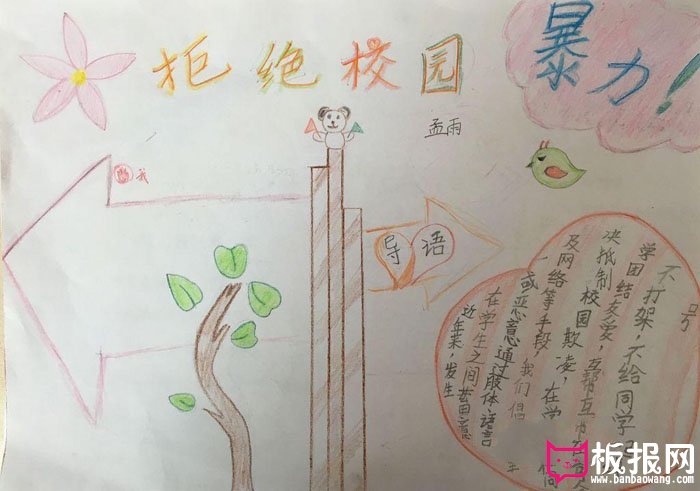 拒绝校园暴力！
孟雨
我
导语
近年来，发生
在学生之间蓄意
或恶意通过肢体、语言
及网络等手段，
我们倡
校园欺凌，在学
决抵制
学团结友爱，互帮互
不打架，不给同学
号
板报网
www.banbaowang.com